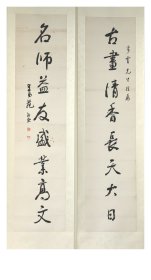 古畫清香長天大日
名師益友盛業高文